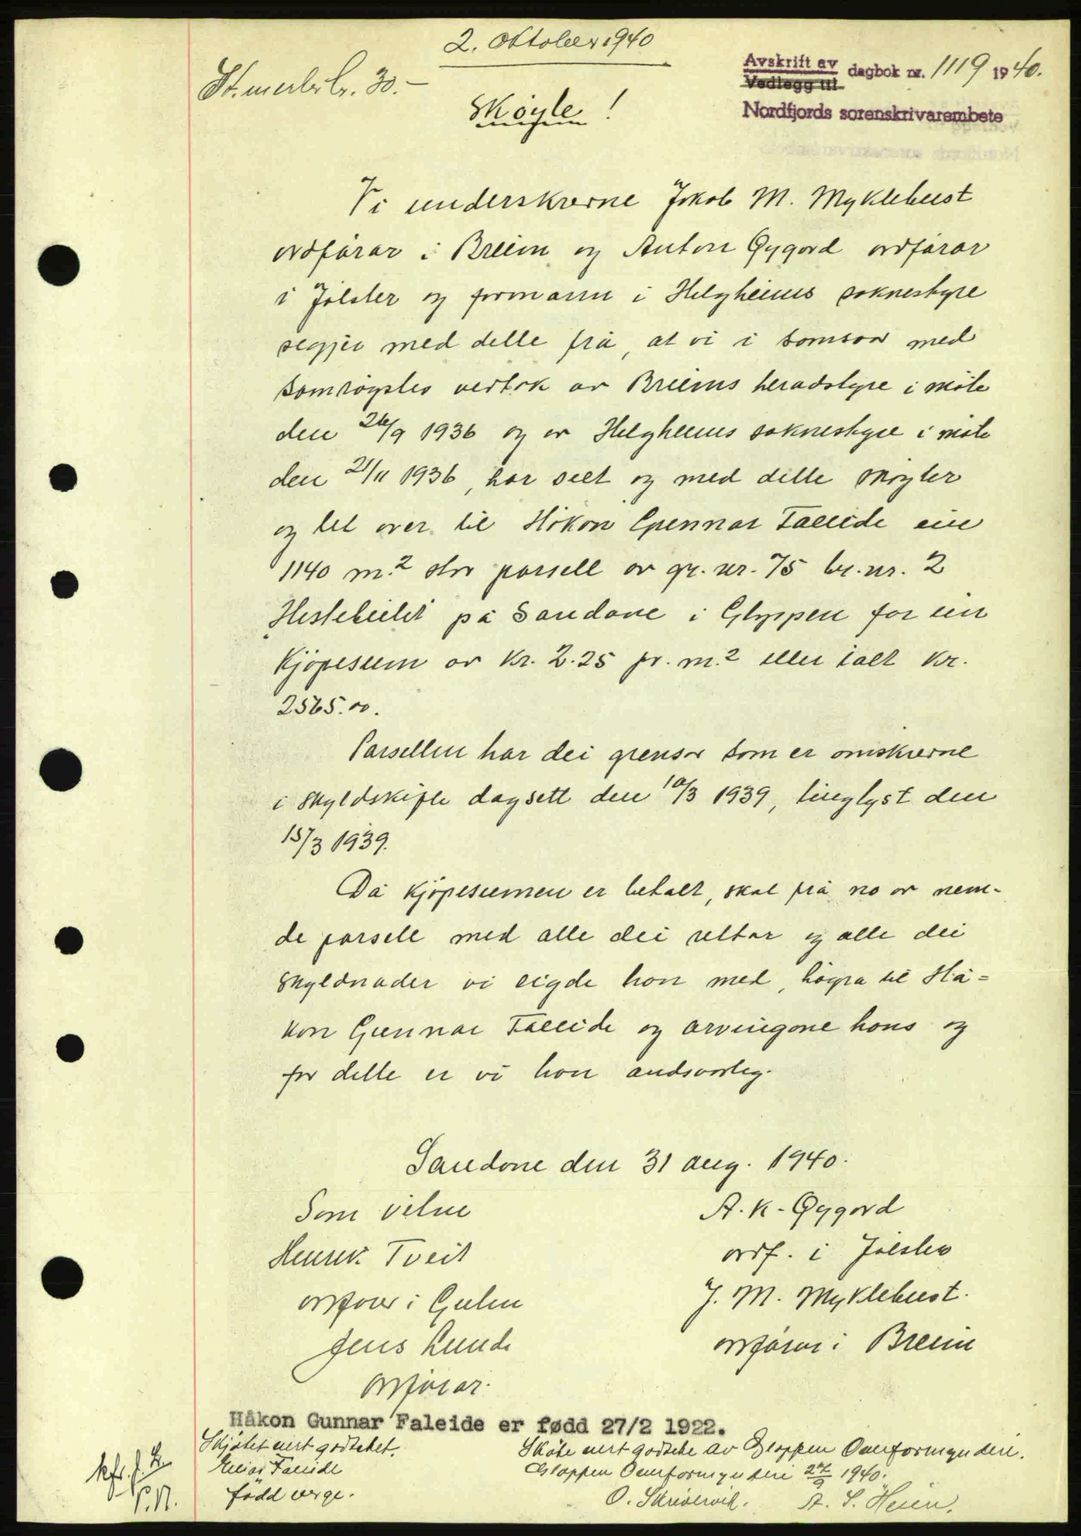 2. Oktober 1940
St.merke kr. 30.-
Avskrift av
Vedlegg til
dagbok nr. 1119 1940.
Nordfjords sorenskrivarembete
Skøyte!
Vi underskrevne Jakob M. Myklebust
ordførar i Breim og Anton Øygard ordførar
i Jølster og formann i Helgheims soknestyre
segjer med dette frå, at vi i samsvar med
samrøystes vedtak av Breims heradstyre i møte
den 26/9 1936 og av Helgheims soknestyre i møte
den 21/11 1936, har selt og med dette skøyter
og let over til Håkon Gunnar Faleide ein
1140 m.² stor parsell av gr. nr. 75 br. nr. 2
Hestebeitet på Sandane i Gloppen for ein
kjøpesum av kr. 2.25 pr. m.² eller ialt kr.
2565.00.
Parsellen har dei grensor som er omskrevne
i skyldskifte dagsett den 10/3 1939, tinglyst den
15/3 1939.
Då kjøpesummen er betalt, skal frå no av nem-
de parsell med alle dei rettar og alle dei
skyldnader vi eigde han med, høyra til Hå-
kon Gunnar Faleide og arvingane hans og
for dette er vi han andsvarleg.
Sandane den 31 aug. 1940.
Som vitne
Henrik Tveit
ordførar i Gulen
Jens Lunde
ordførar.
A. K. Øygard
ordf. i Jølster
J. M. Myklebust.
ordførar i Breim
Håkon Gunnar Faleide er fødd 27/2 1922.
Skjøtet vert godteke.
Elias Faleide
fødd verge.
Skøte vert godteke av Gloppen Overformynderi.
Gloppen Overformynderi 27/9 1940.
O. Skrivervik. A. S. Heien.